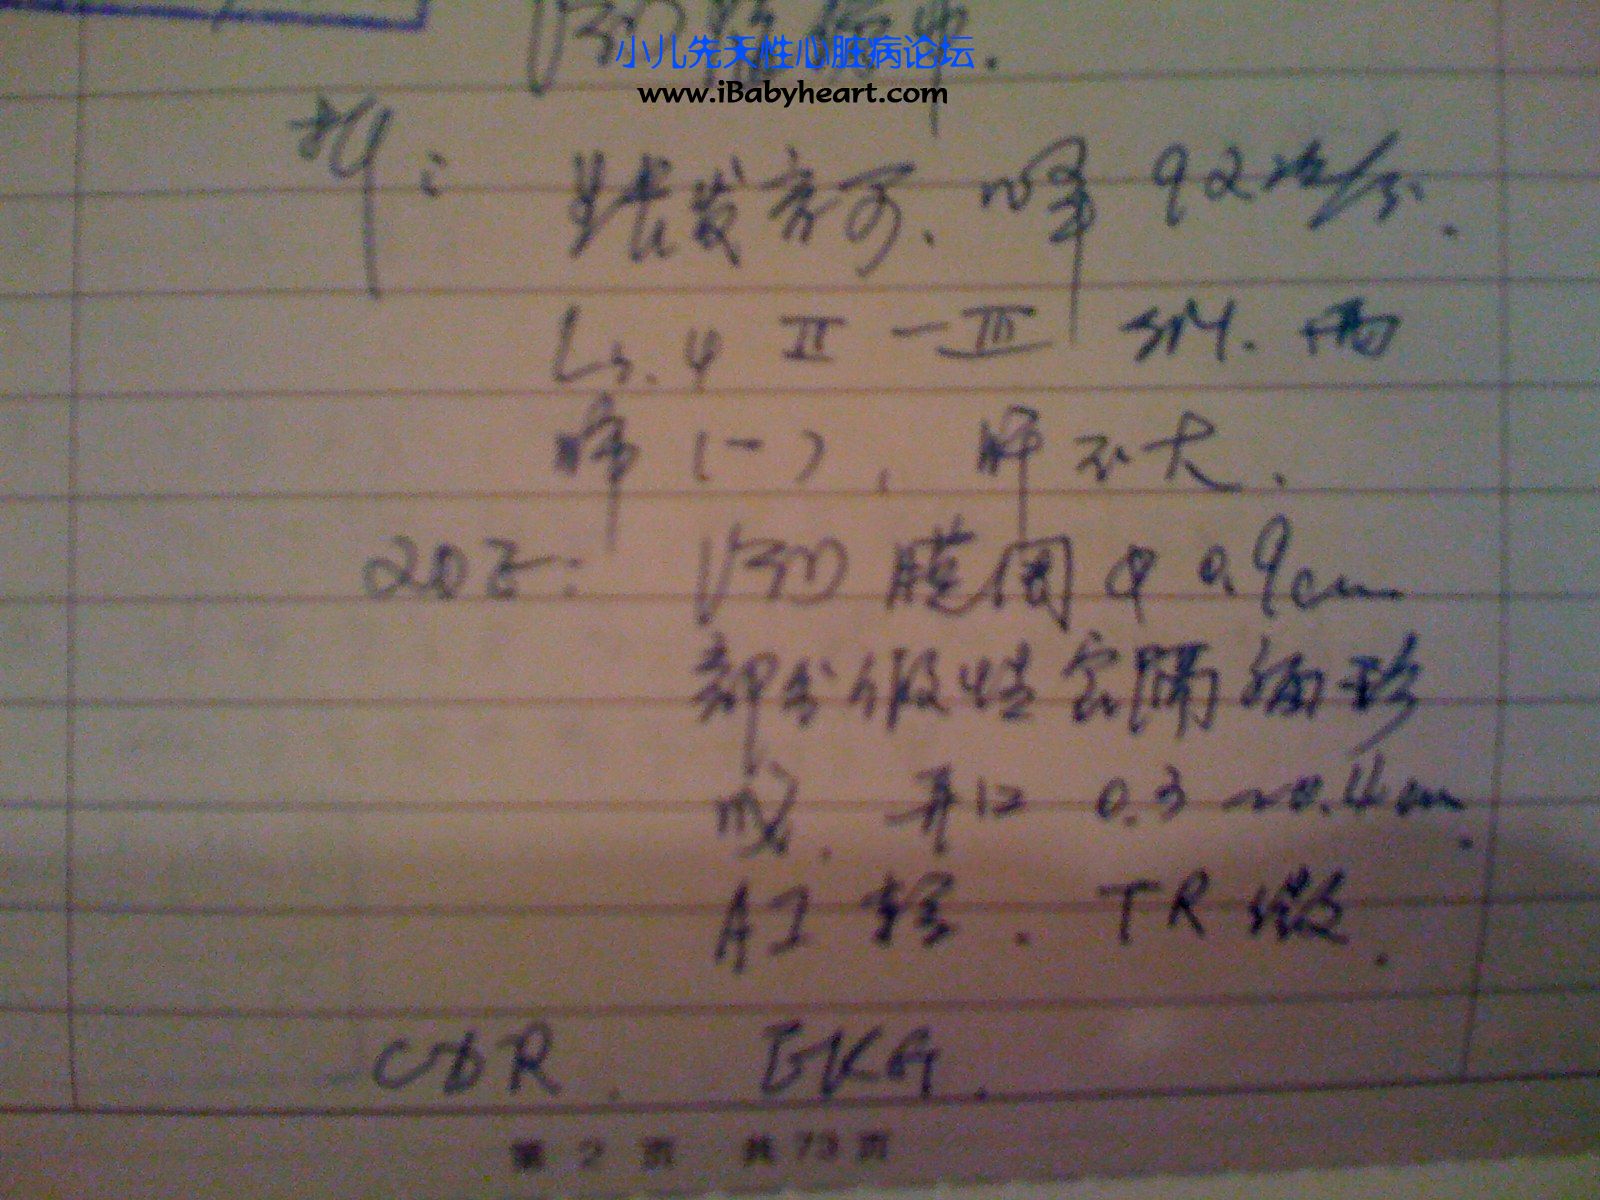 VSD 膜
小儿先天性心脏病论坛
www.iBabyheart.com
生长发育可、心率 92次/分.
L3.4 Ⅱ-Ⅲ SM. 两
肺(-), 肝不大.
2DE: VSD 膜周 φ 0.9cm
部分假性室隔瘤形
成. 开口 0.3~0.4cm.
AI 轻. TR 微.
CXR. EKG.
第 2 页 共 73 页